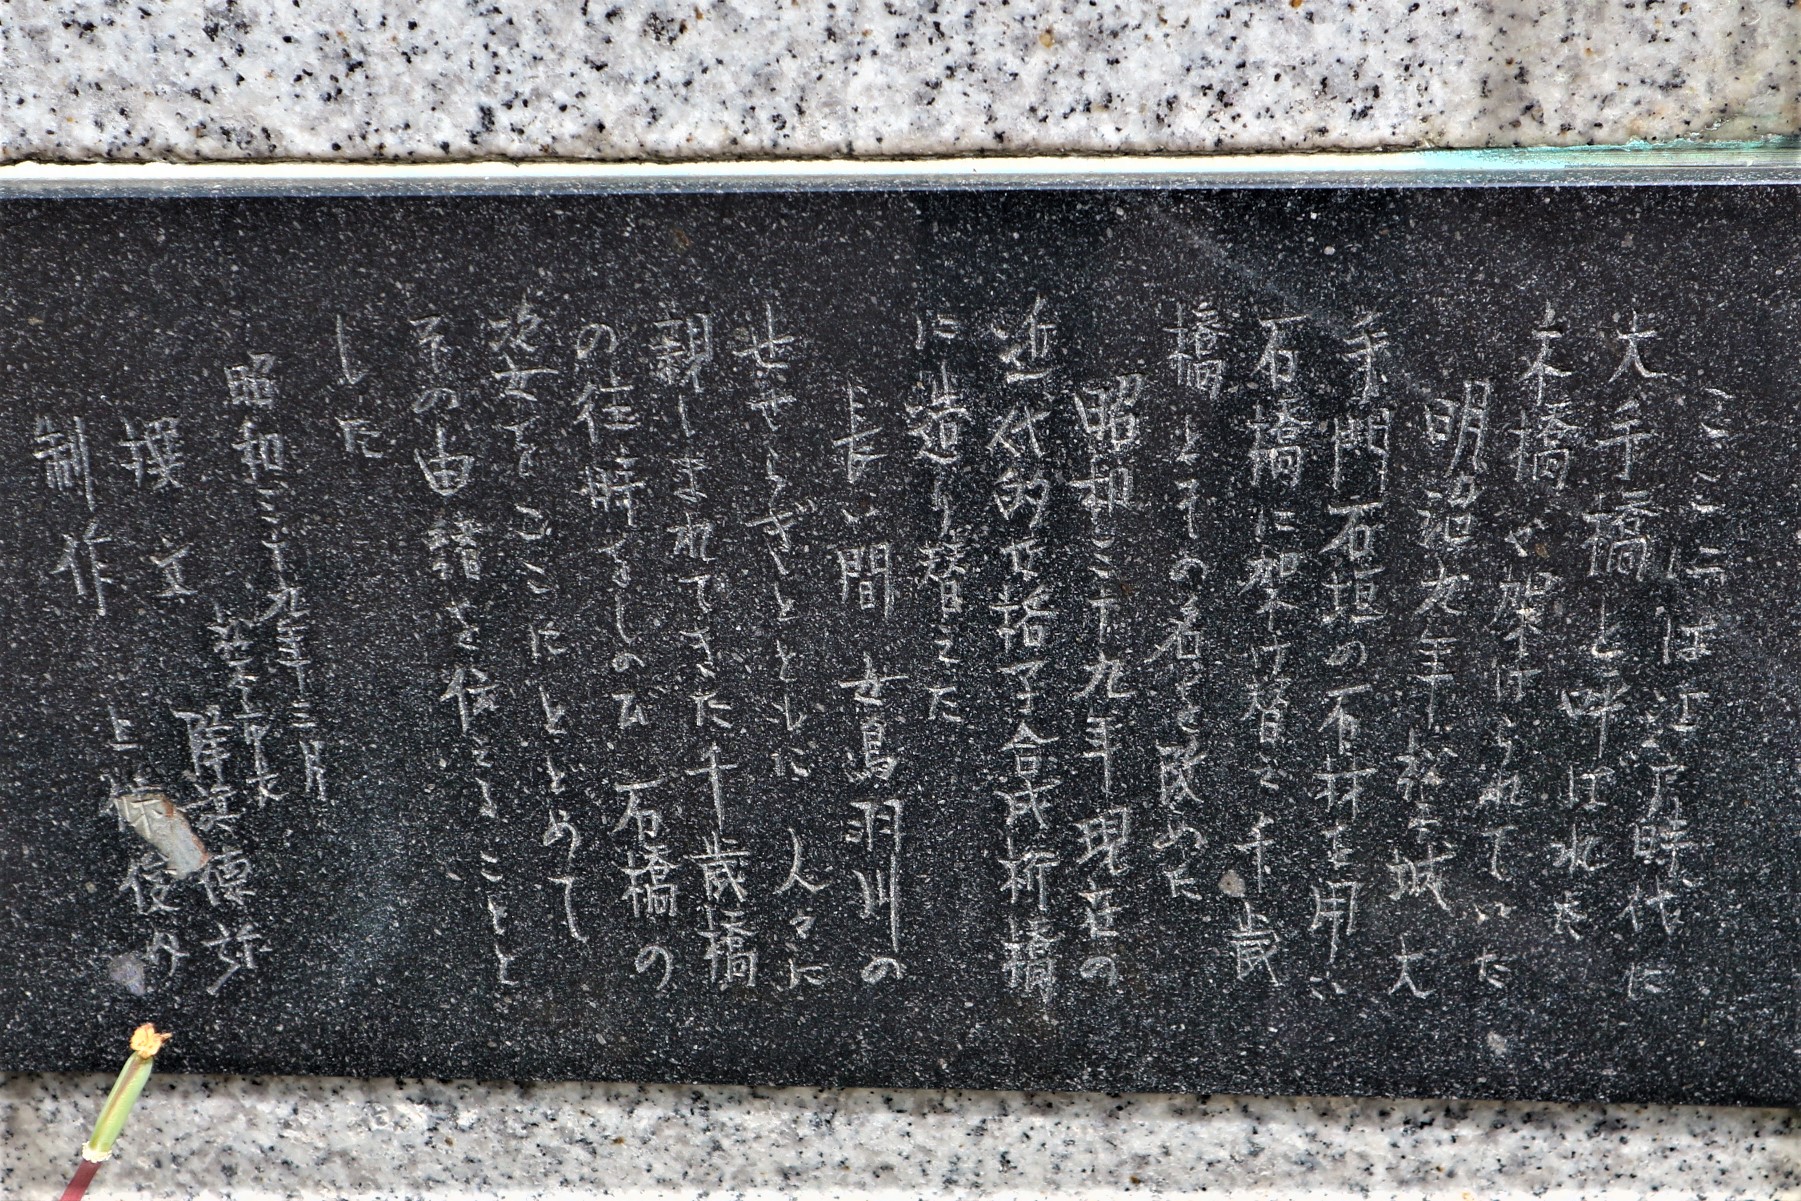 ここには江戸時代に
大手橋と呼ばれた
木橋が架けられていた
明治九年松本城大
手門石垣の石材を用い
石橋に架け替え千歳
橋とその名を改めた
昭和三十九年現在の
近代的 合成桁橋
に造り替えた
長い間 女鳥羽川の
せせらぎとともに 人々に
親しまれてきた千歳橋
の往時をしのぶ 石橋の
姿をここにとどめて
その由緒を伝えることと
した
昭和三十九年三月
撰文 松本市長 降旗徳弥
制作 上條俊介